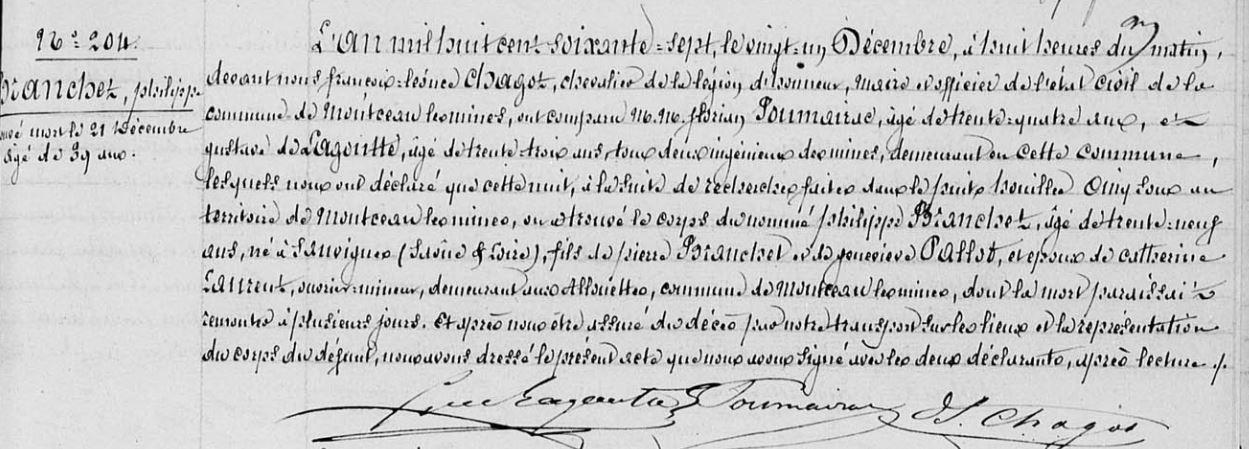 N.° 204.
Branchet, philippe
trouvé mort le 21 Décembre
Agé de 39 ans.
L'An mil huit cent soixante-sept, le vingt-un Décembre, à huit heures du matin,
devant nous françois-léonce Chagot, chevalier de la légion d'honneur, maire et officier de l'état civil de la
commune de Montceau les mines, ont comparu M.M. florian Poumairac, agé de trente-quatre ans, et
gustave de Lagoutte, agé de trente trois ans, tous deux ingénieurs des mines, demeurant en cette commune,
lesquels nous ont déclaré que cette nuit, à la suite de recherches faites dans le puits houiller Cinq Sous au
territoire de Montceau les mines, on a trouvé le corps du nommé philippe Branchet, agé de trente-neuf
ans, né à Sauvignes (Saône & Loire), fils de pierre Branchet et de geneviève Pallot, et époux de catherine
Laurent, ouvrier-mineur, demeurant aux Allouettes, commune de Montceau les mines, dont la mort paraissait
remonter à plusieurs jours. Et après nous être assuré du décès par notre transport sur les lieux et la représentation
du corps du défunt, nous avons dressé le présent acte que nous avons signé avec les deux déclarants, après lecture ./.
Lagoutte Poumairac LS. Chagot